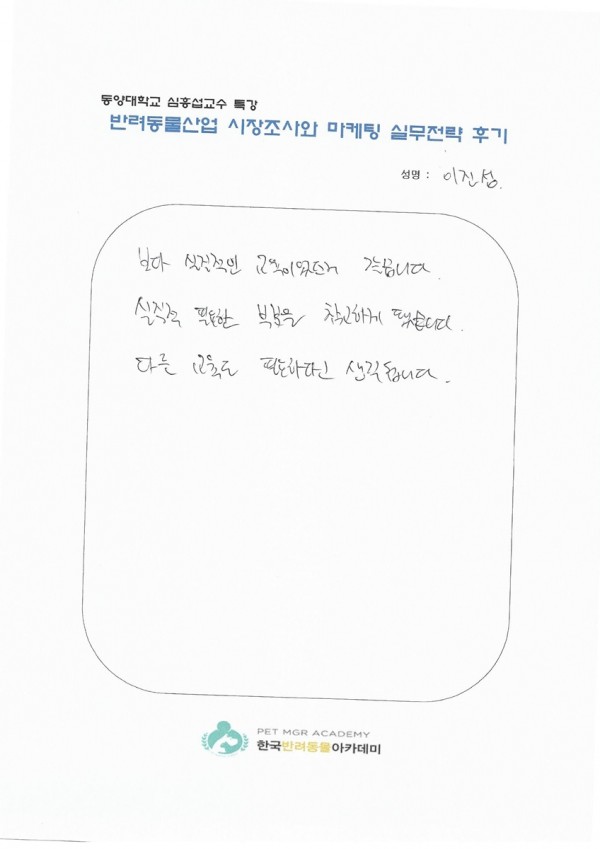 동양대학교 심흥섭교수 특강
반려동물산업 시장조사와 마케팅 실무전략 후기
성명 : 이진성.
보다 실질적인 교육이었던거 같습니다.
실질적 필요한 부분을 참고하게 됐습니다.
다른 교육도 필요하다고 생각됩니다.
PET MGR ACADEMY
한국반려동물아카데미